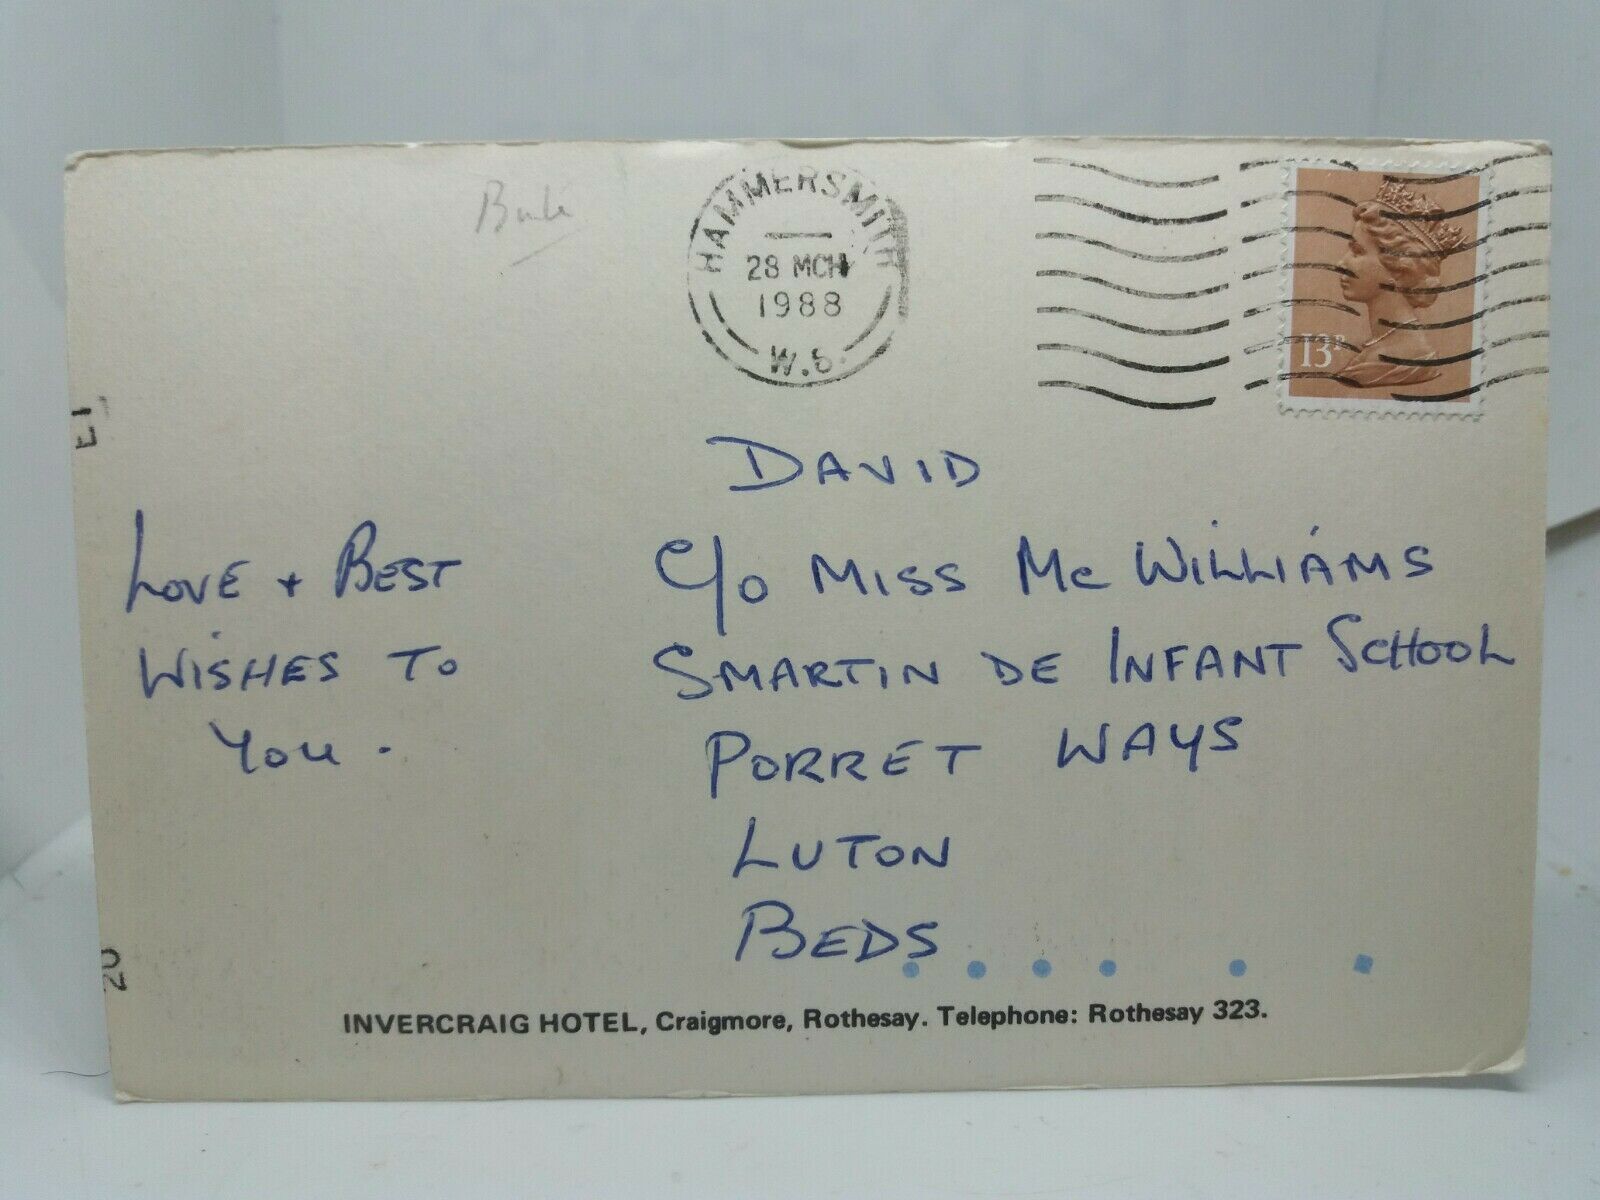 HAMMERSMITH
28 MCH
1988
13P
DAVID
LOVE + BEST
WISHES TO
YOU.
C/O MISS Mc WILLIAMS
SMARTIN DE INFANT SCHOOL
PORRET WAYS
LUTON
BEDS
INVERCRAIG HOTEL, Craigmore, Rothesay. Telephone: Rothesay 323.